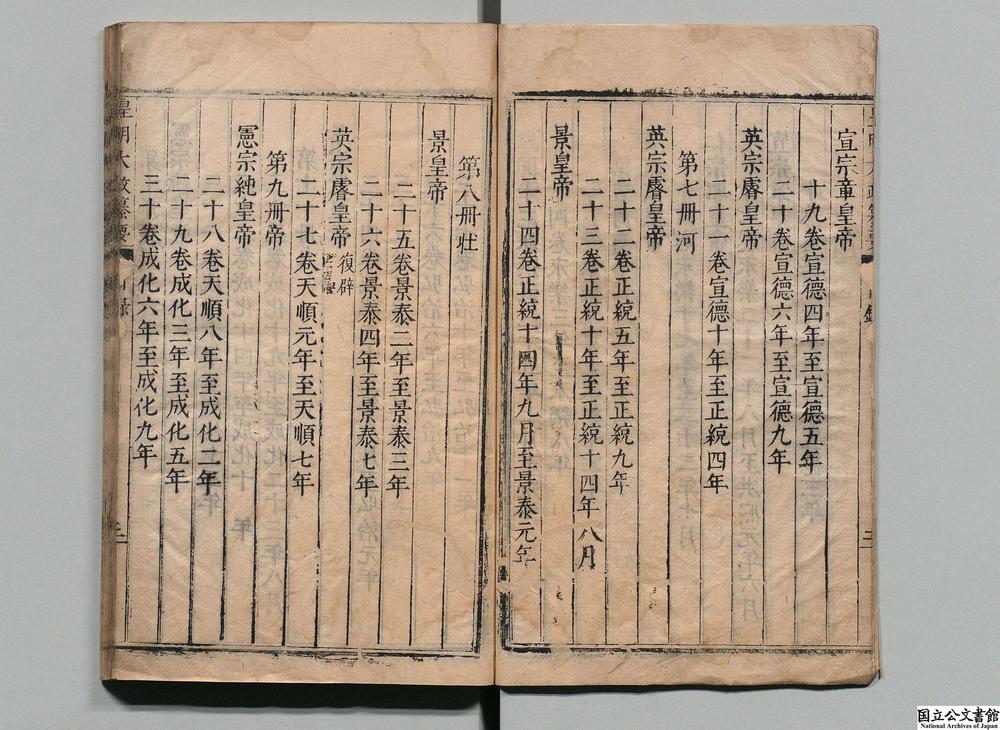 宣宗章皇帝
十九卷宣德四年至宣德五年
二十卷宣德六年至宣德九年
英宗睿皇帝
二十一卷宣德十年至正統四年
第七冊河
英宗睿皇帝
二十二卷正統五年至正統九年
二十三卷正統十年至正統十四年八月
景皇帝
二十四卷正統十四年九月至景泰元年
第八冊壯
景皇帝
二十五卷景泰二年至景泰三年
二十六卷景泰四年至景泰七年
英宗睿皇帝復辟
二十七卷天順元年至天順七年
第九冊帝
憲宗純皇帝
二十八卷天順八年至成化二年
二十九卷成化三年至成化五年
三十卷成化六年至成化九年
皇明大政纂要 目錄
国立公文書館
National Archives of Japan